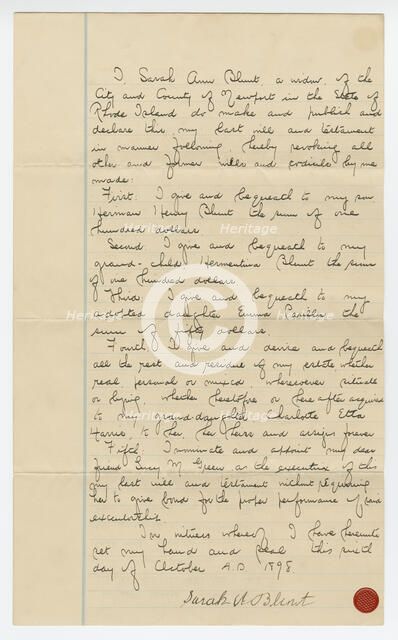 I, Sarah Ann Blunt, a widow, of the
City and County of Newport in the State of
Rhode Island do make and publish and
declare this my last will and testament
in manner following, hereby revoking all
other and former wills and codicils by me
made:
First: I give and bequeath to my son
Herman Henry Blunt the sum of one
hundred dollars
Second: I give and bequeath to my
grand-child Hermentina Blunt the sum
of one hundred dollars.
Third: I give and bequeath to my
adopted daughter Emma the
sum of fifty dollars.
Fourth: I give and devise and bequeath
all the rest and residue of my estate whether
real, personal or mixed, wheresoever situate
or lying, whether heretofore or hereafter acquired
to my granddaughter Charlotte Etta
Harris, to her, her heirs and assigns forever
Fifth: I nominate and appoint my dear
friend Lucy M Green as the executrix of this
my last will and testament without requiring
her to give bond for the proper performance of said
executorship.
In witness whereof I have hereunto
set my hand and seal this sixth
day of October A.D. 1898.
Sarah A Blunt
Heritage